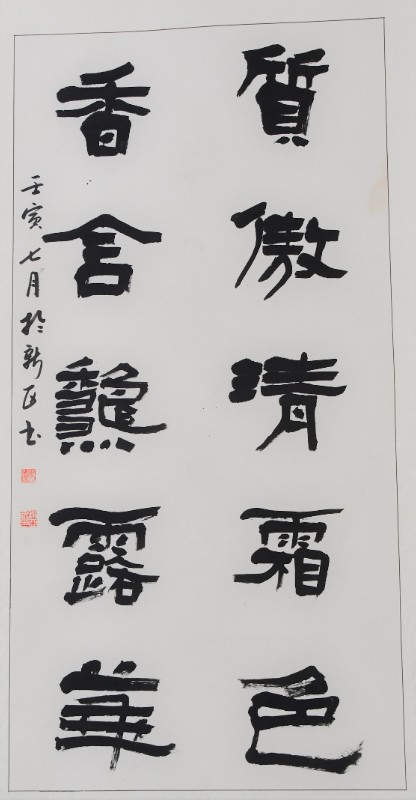 質傲清霜色
香含龝露華
壬寅七月於新书